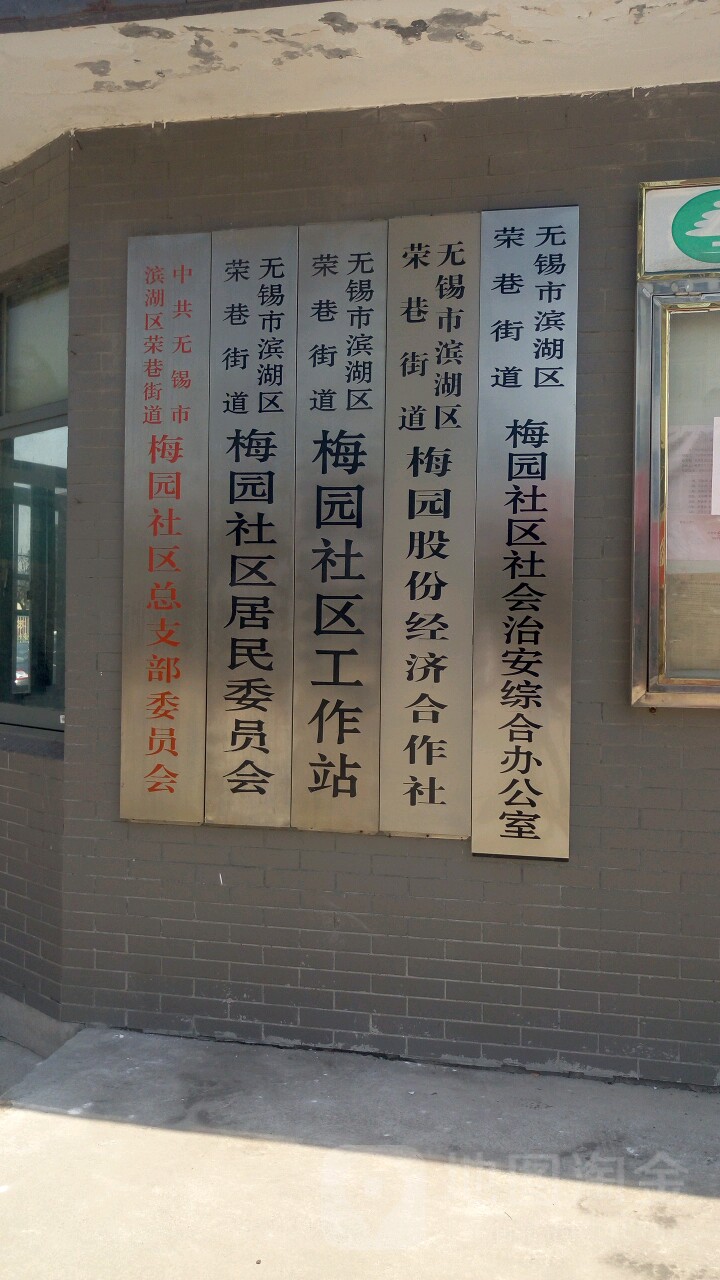 中共无锡市
滨湖区荣巷街道
梅园社区总支部委员会
无锡市滨湖区
荣巷街道
梅园社区居民委员会
无锡市滨湖区
荣巷街道
梅园社区工作站
无锡市滨湖区
荣巷街道
梅园股份经济合作社
无锡市滨湖区
荣巷街道
梅园社区社会治安综合办公室
地图淘金